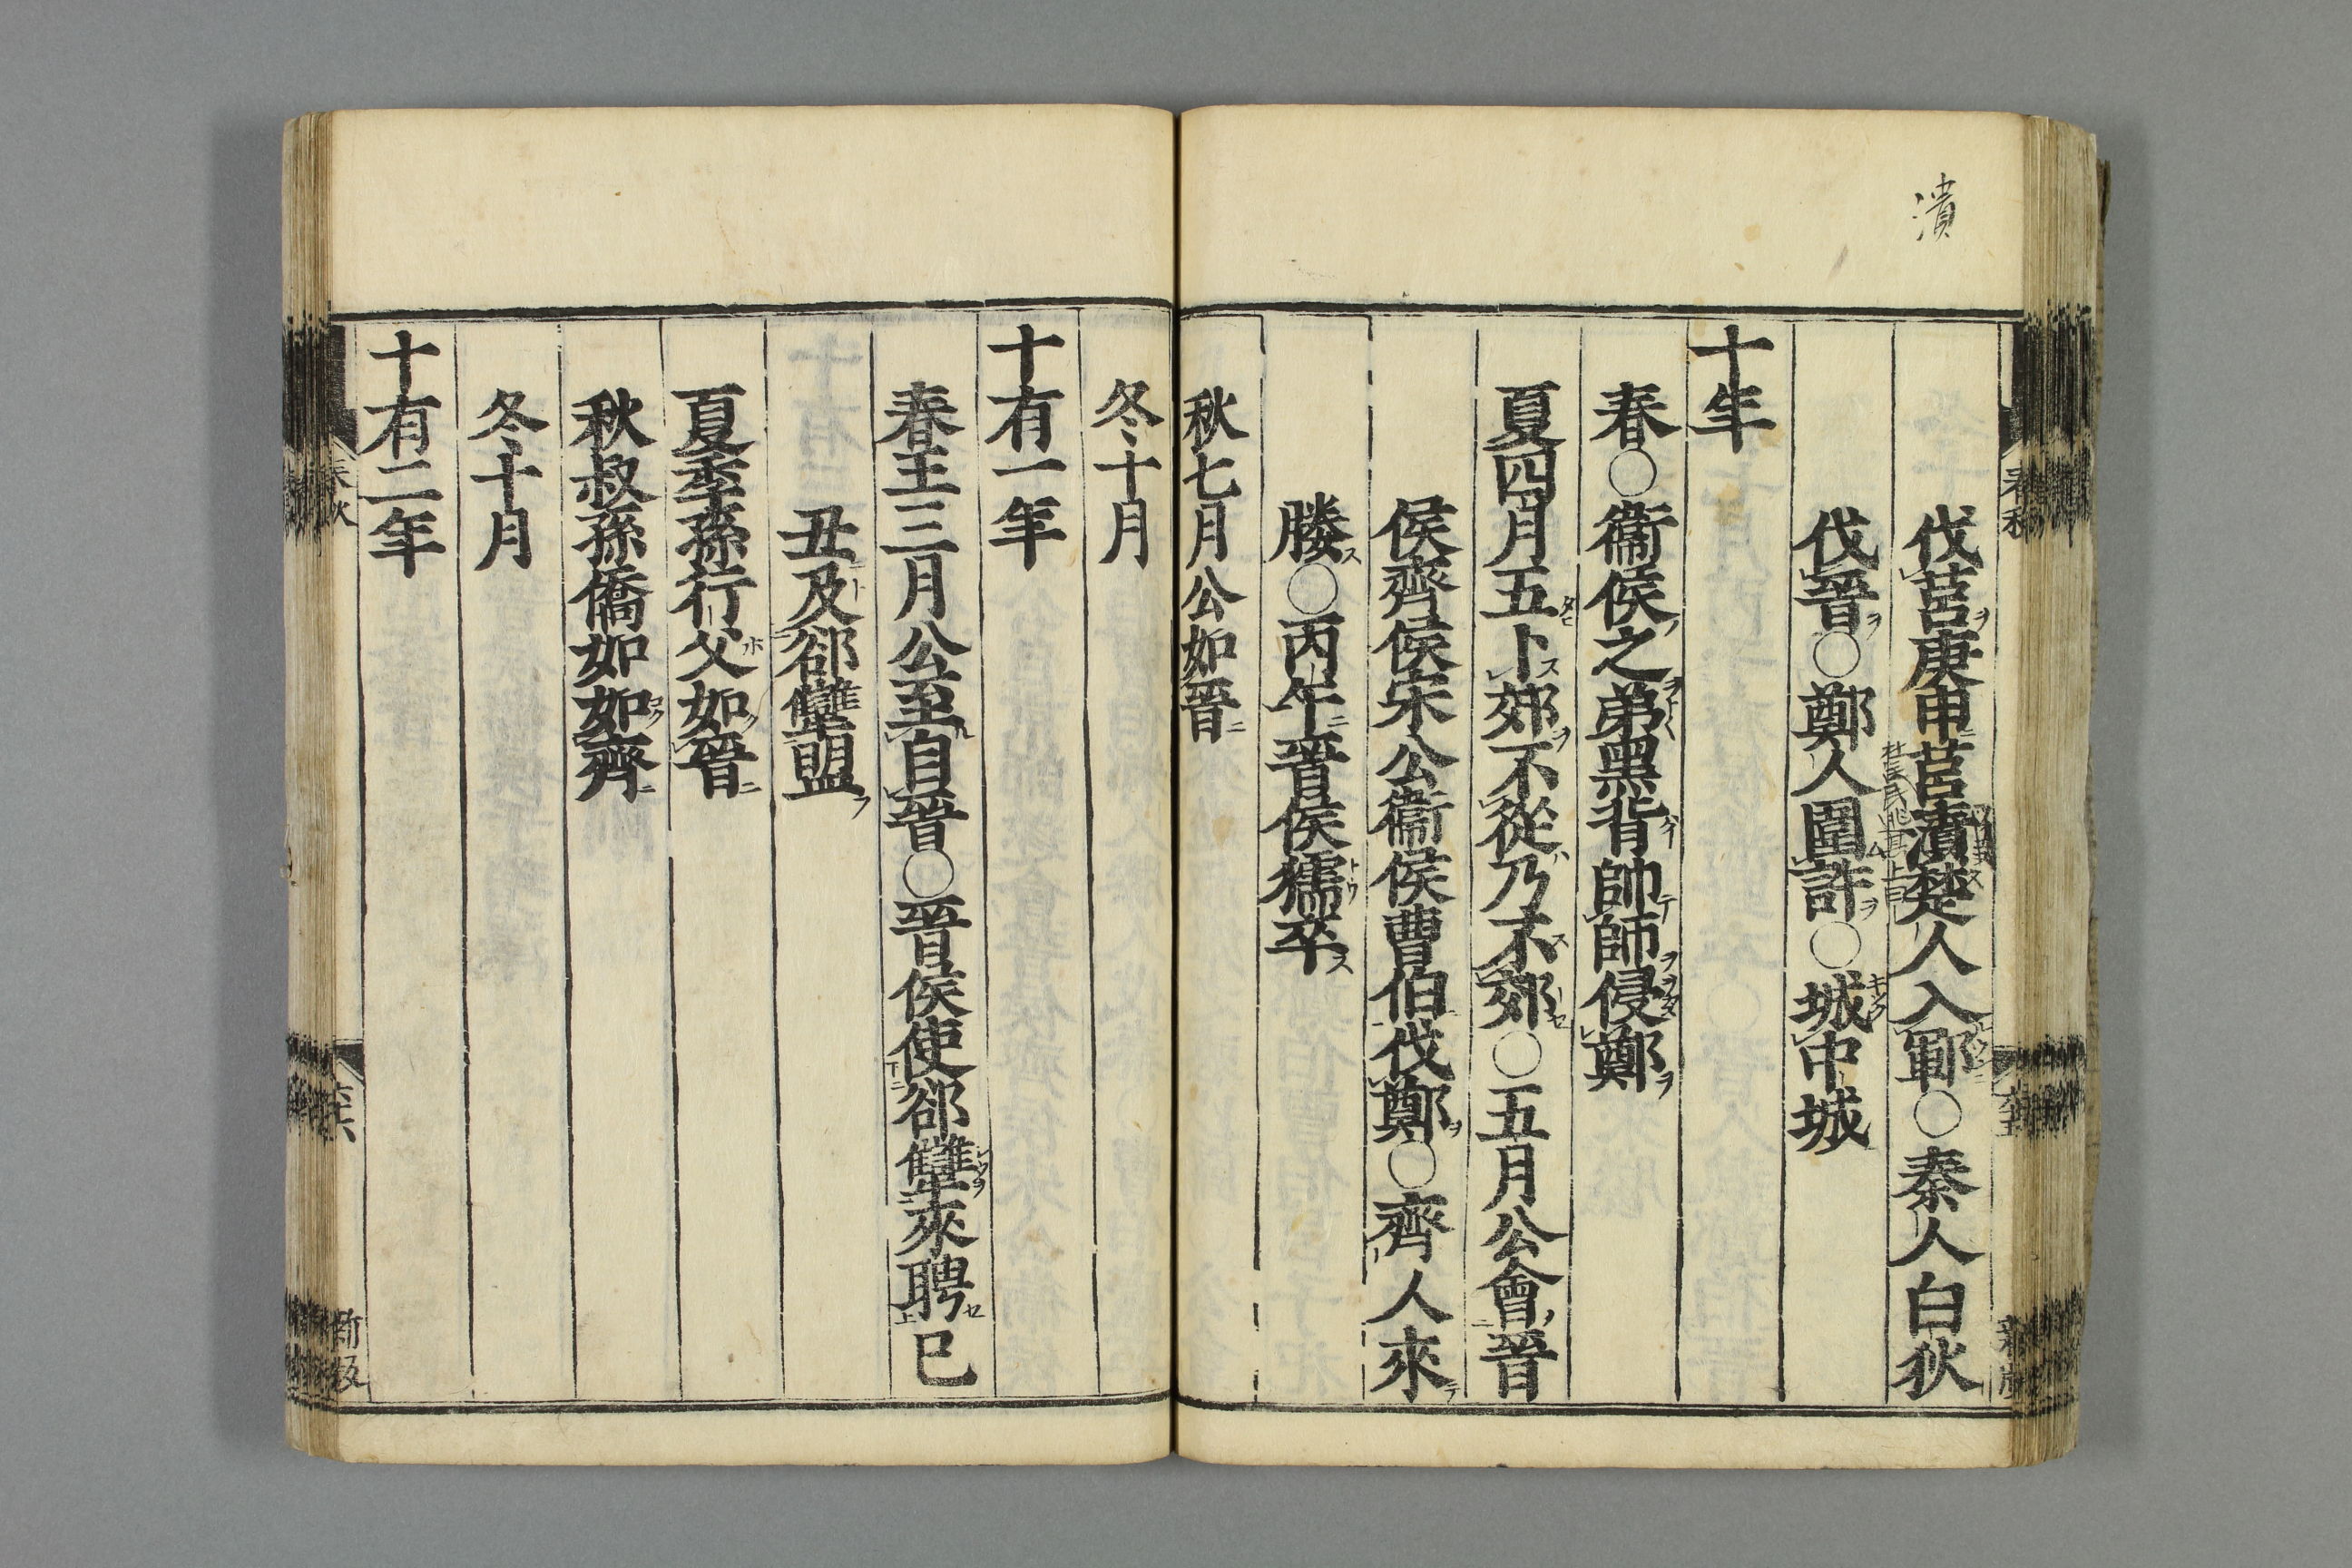 潰
伐莒庚申莒潰楚人入鄆○秦人白狄
伐晉○鄭人圍許○城中城
十年
春○衞侯之弟黑背帥師侵鄭
夏四月五卜郊不從乃不郊○五月公會晉
侯齊侯宋公衞侯曹伯伐鄭○齊人來
媵○丙午晉侯獳卒
秋七月公如晉
冬十月
十有一年
春王三月公至自晉○晉侯使郤犫來聘己
丑及郤犫盟
夏季孫行父如晉
秋叔孫僑如如齊
冬十月
十有二年